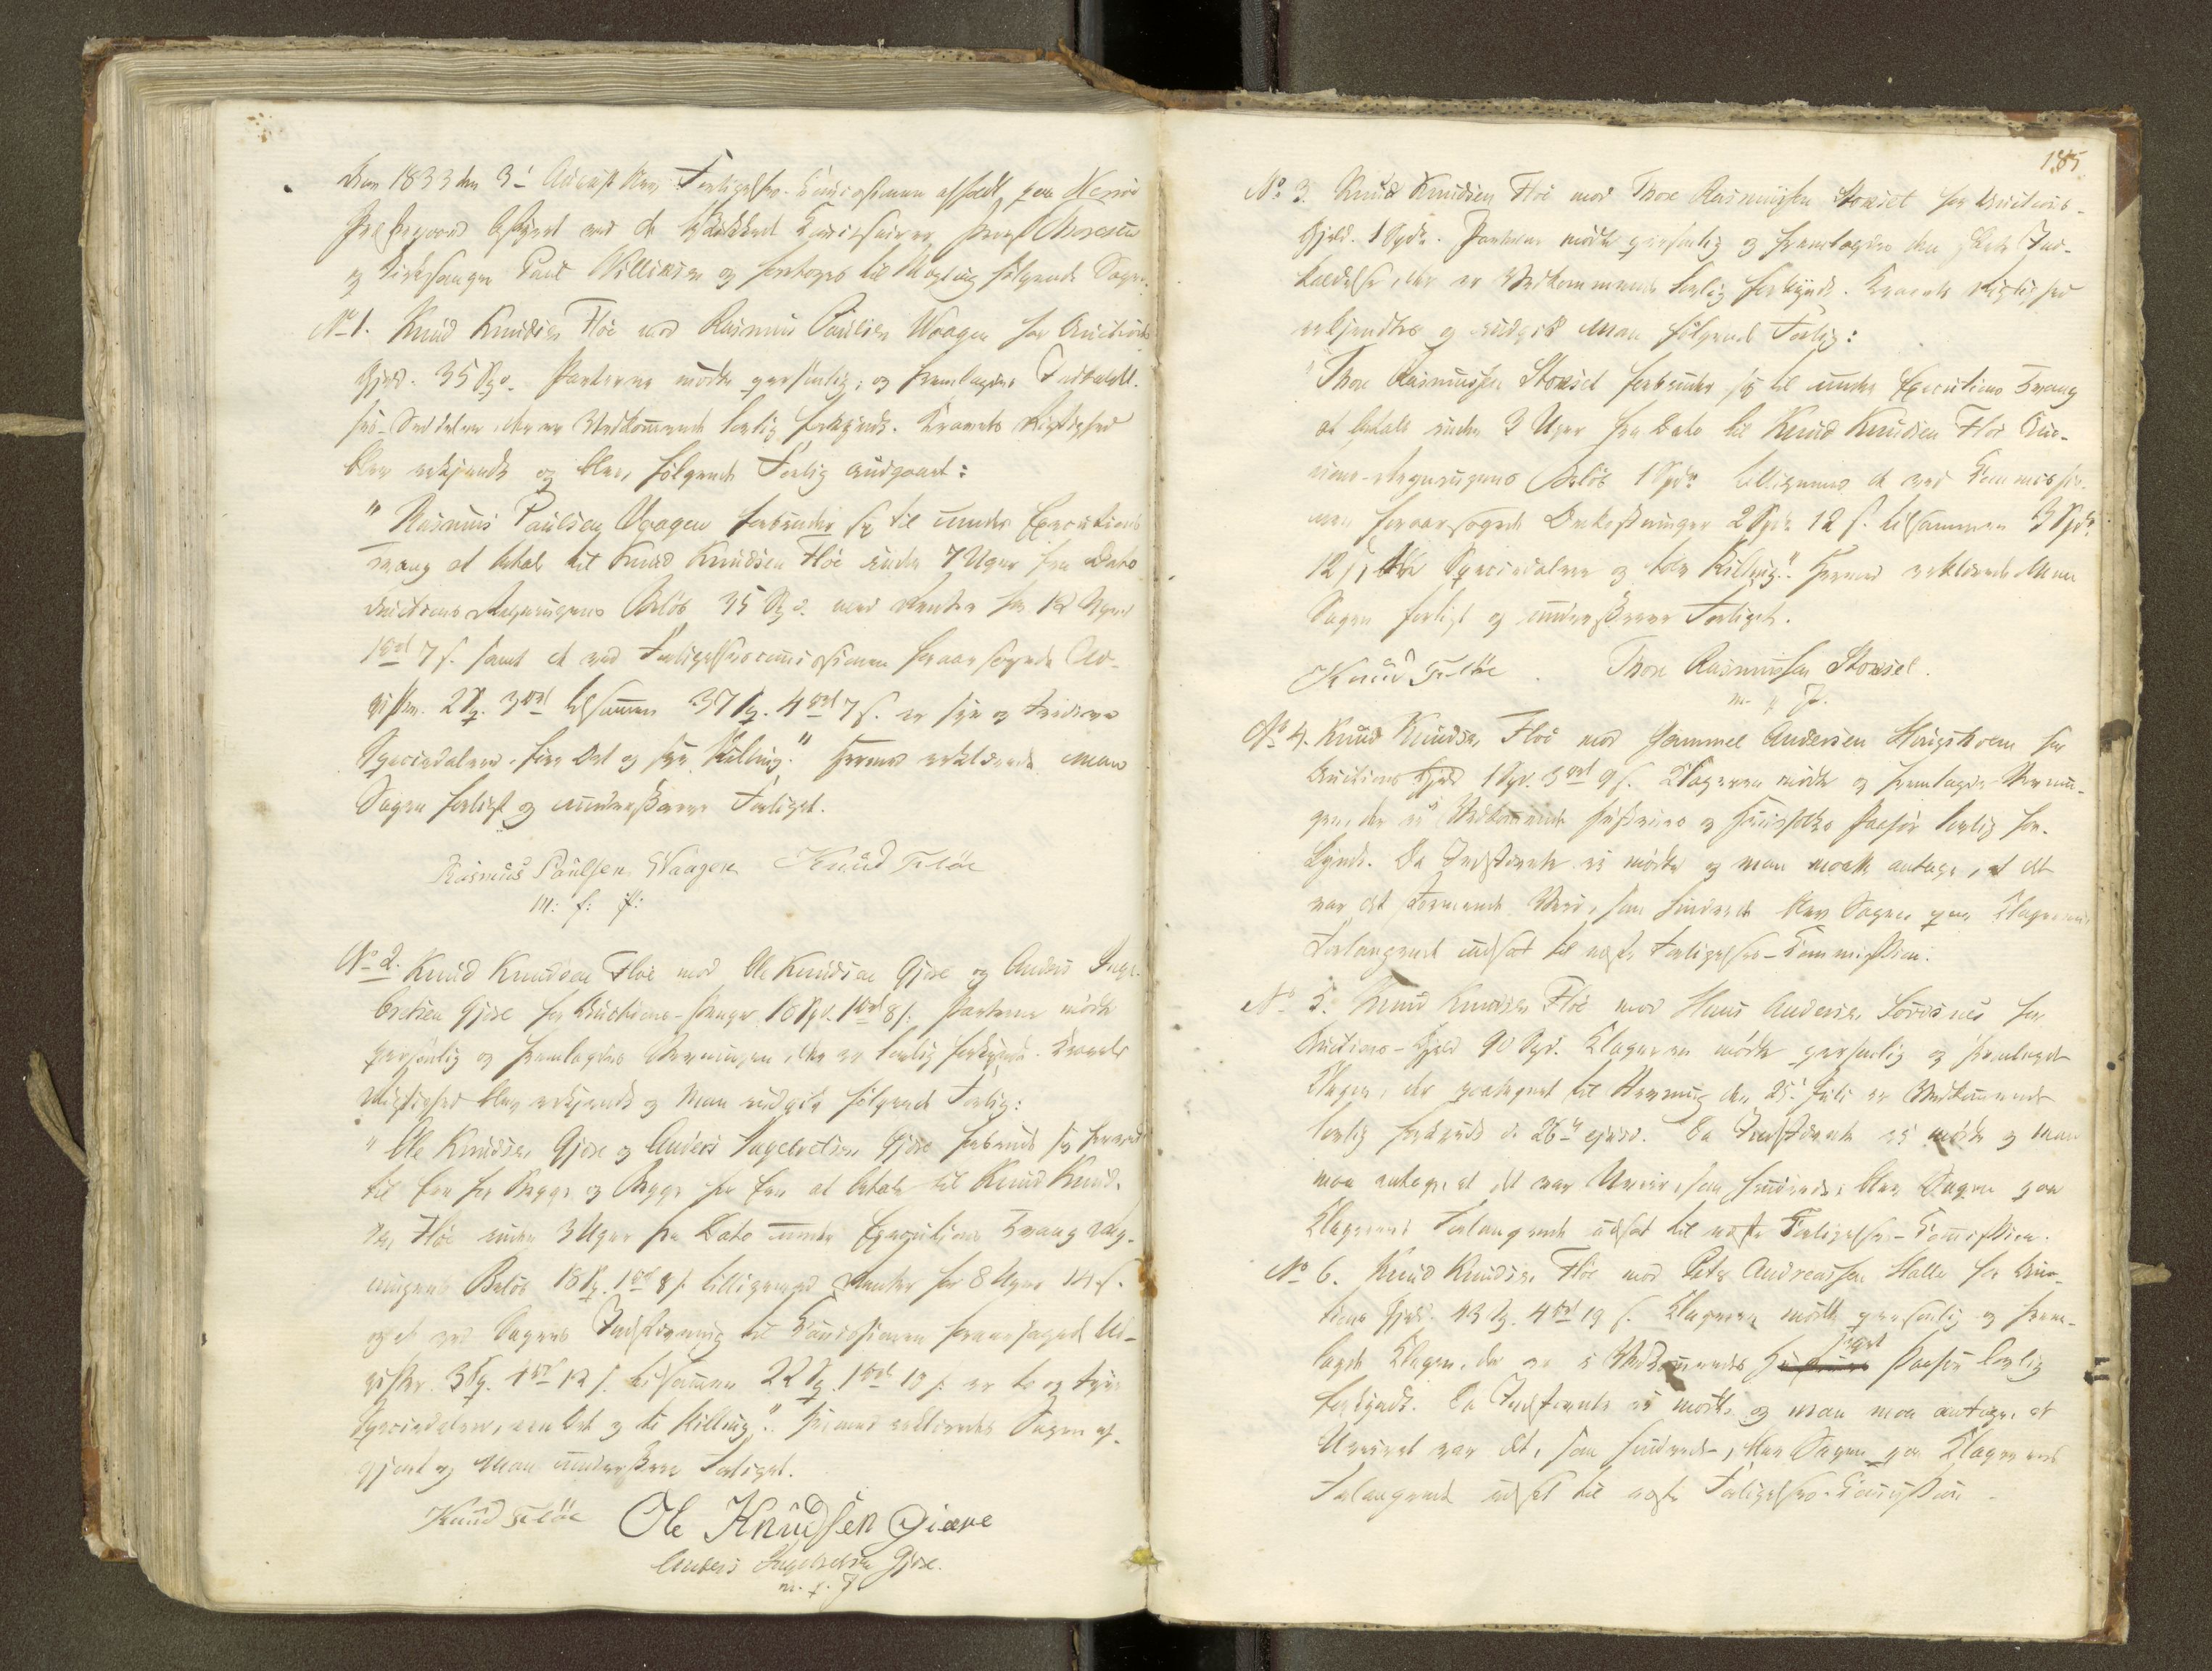 Aar 1833 den 3die August blev Forligelses-Commissionen afholdt paa Herrøe
Præstegaard bestyret ved de beskikkede Commissairer Provst
og Kirkesanger Poul Villiksen og foretoges til Mægling følgende Sager.
No 1. Knud Knudsen Fløe mod Rasmus Paulsen Waagen for Auctions
Gjeld. 35 Spd. Parterne mødte personlig, og fremlagdes Indkaldel-
ses-Seddelen der er Vedkommende lovlig forkyndt. Kravets Rigtighed
blev erkjendt og blev følgende Forlig indgaaet:
"Rasmus Paulsen Vaagen forbinder sig til under Executions
Tvang at betale til Knud Knudsen Fløe inden 7 Uger fra Dato
Auctions Regningens Beløb 35 Spd. med Renter for 12 Uger
1 ort 7 s. samt de ved Forligelsescommissionen foraarsagede Ud-
gifter 2 Sp. 3 ort tilsammen 37 Sp. 4 ort 7 s. er syv og tredive
Speciedaler, fire Ort og syv Skilling." Hermed erklærede man
Sagen forligt og underskrev Forliget.
Rasmus Paulsen Waagen Knud Fløe
m: f: P:
No 2. Knud Knudsen Fløe mod Ole Knudsen Gjøre og Anders Inge-
bretsen Gjøre for Auctions-Penger 18 Spd. 1 ort 8 s. Parterne mødte
personlig og fremlagdes Stevningen, der er lovlig forkyndt. Kravets
Rigtighed blev erkjendt og Man indgik følgende Forlig:
"Ole Knudsen Gjøre og Anders Ingebretsen Gjøre forbinde sig herved
til Een for Begge og Begge for Een at betale til Knud Knud-
sen Fløe inden 3 Uger fra Dato under Executions Tvang Reg-
ningens Beløb 18 Sp. 1 ort 8 s. tilligemed Renter for 8 Uger 14 s.
og de ved Sagens Indstevning til Commissionen foraarsagede Ud-
gifter 3 Sp. 4 ort 12 s. tilsammen 22 Sp. 1 ort 10 s. er to og tyve
Speciedaler, een Ort og ti Skilling." Hermed erklæredes Sagen af-
gjort og Man underskrev Forliget.
Knud Fløe Ole Knudsen Giøre
Anders Ingebretsen Gjøre.
m. p. P
185.
No 3. Knud Knudsen Fløe mod Thore Rasmussen Storset for Auctions-
Gjeld. 1 Spdlr. Parterne mødte personlig og fremlagdes den skete Ind-
kaldelse, der er Vedkommende lovlig forkyndt. Kravets Rigtighed
erkjendtes og indgik Man følgende Forlig:
"Thore Rasmussen Storset forbinder sig til under Executions Tvang
at betale inden 3 Uger fra Dato til Knud Knudsen Fløe Auc-
tions-Regningens Beløb 1 Spdr tilligemed de ved Commissio-
nen foraarsagede Omkostninger 2 Spdr 12 s. tilsammen 3 Spdr
12 s. tre Speciedaler og tolv Skilling." Hermed erklærede Man
Sagen forligt og underskrev Forliget.
Knud Fløe. Thore Rasmussen Storset.
m. p. P.
No 4. Knud Knudsen Fløe mod Gammel Andersen for
Auctions Gjeld 1 Spd. 3 ort 9 s. Klageren mødte og fremlagde Stevnin-
gen, der i Vedkommende Hustrues og Huusfolks Paahør lovlig for-
kyndt. Da Indstevnte ei mødte og man maatte antage, at det
var det stormende Veir, som hindrede blev Sagen paa Klagerens
Forlangende udsat til næste Forligelses-Commission.
No 5. Knud Knudsen Fløe mod Hans Andersen for
Auctions-Gjeld 90 Spd. Klageren mødte personlig og fremlagde
Klagen, der paategnet til Stevning den 25de Juli er Vedkommende
lovlig forkyndt d. 26de ejusd. Da Indstevnte ei mødte og man
maa antage, at det var Uveir, som hindrede, blev Sagen paa
Klagerens Forlangende udsat til næste Forligelses-Commission.
No 6. Knud Knudsen Fløe mod Peter Andreassen Halle for Auc-
tions Gjeld 43 Sp. 4 ort 19 s. Klageren mødte personlig og frem-
lagde Klagen, der er i Vedkommendes eget Paahør lovlig
forkyndt. Da Indstevnte ei mødte, og man maa antage, at
Uveiret var det, som hindrede, blev Sagen paa Klagerens
Forlangende udsat til næste Forligelses-Commission.